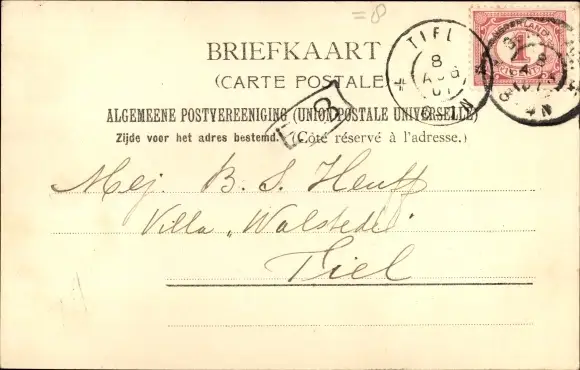 =8
BRIEFKAART
(CARTE POSTALE)
ALGEMEENE POSTVEREENIGING (UNION POSTALE UNIVERSELLE)
Zijde voor het adres bestemd. (Côté réservé à l'adresse.)
TIEL
8
AUG
01
8-
N
1
8
N
B
Mej. B. S. Heuff
Villa „Walstede"
Tiel